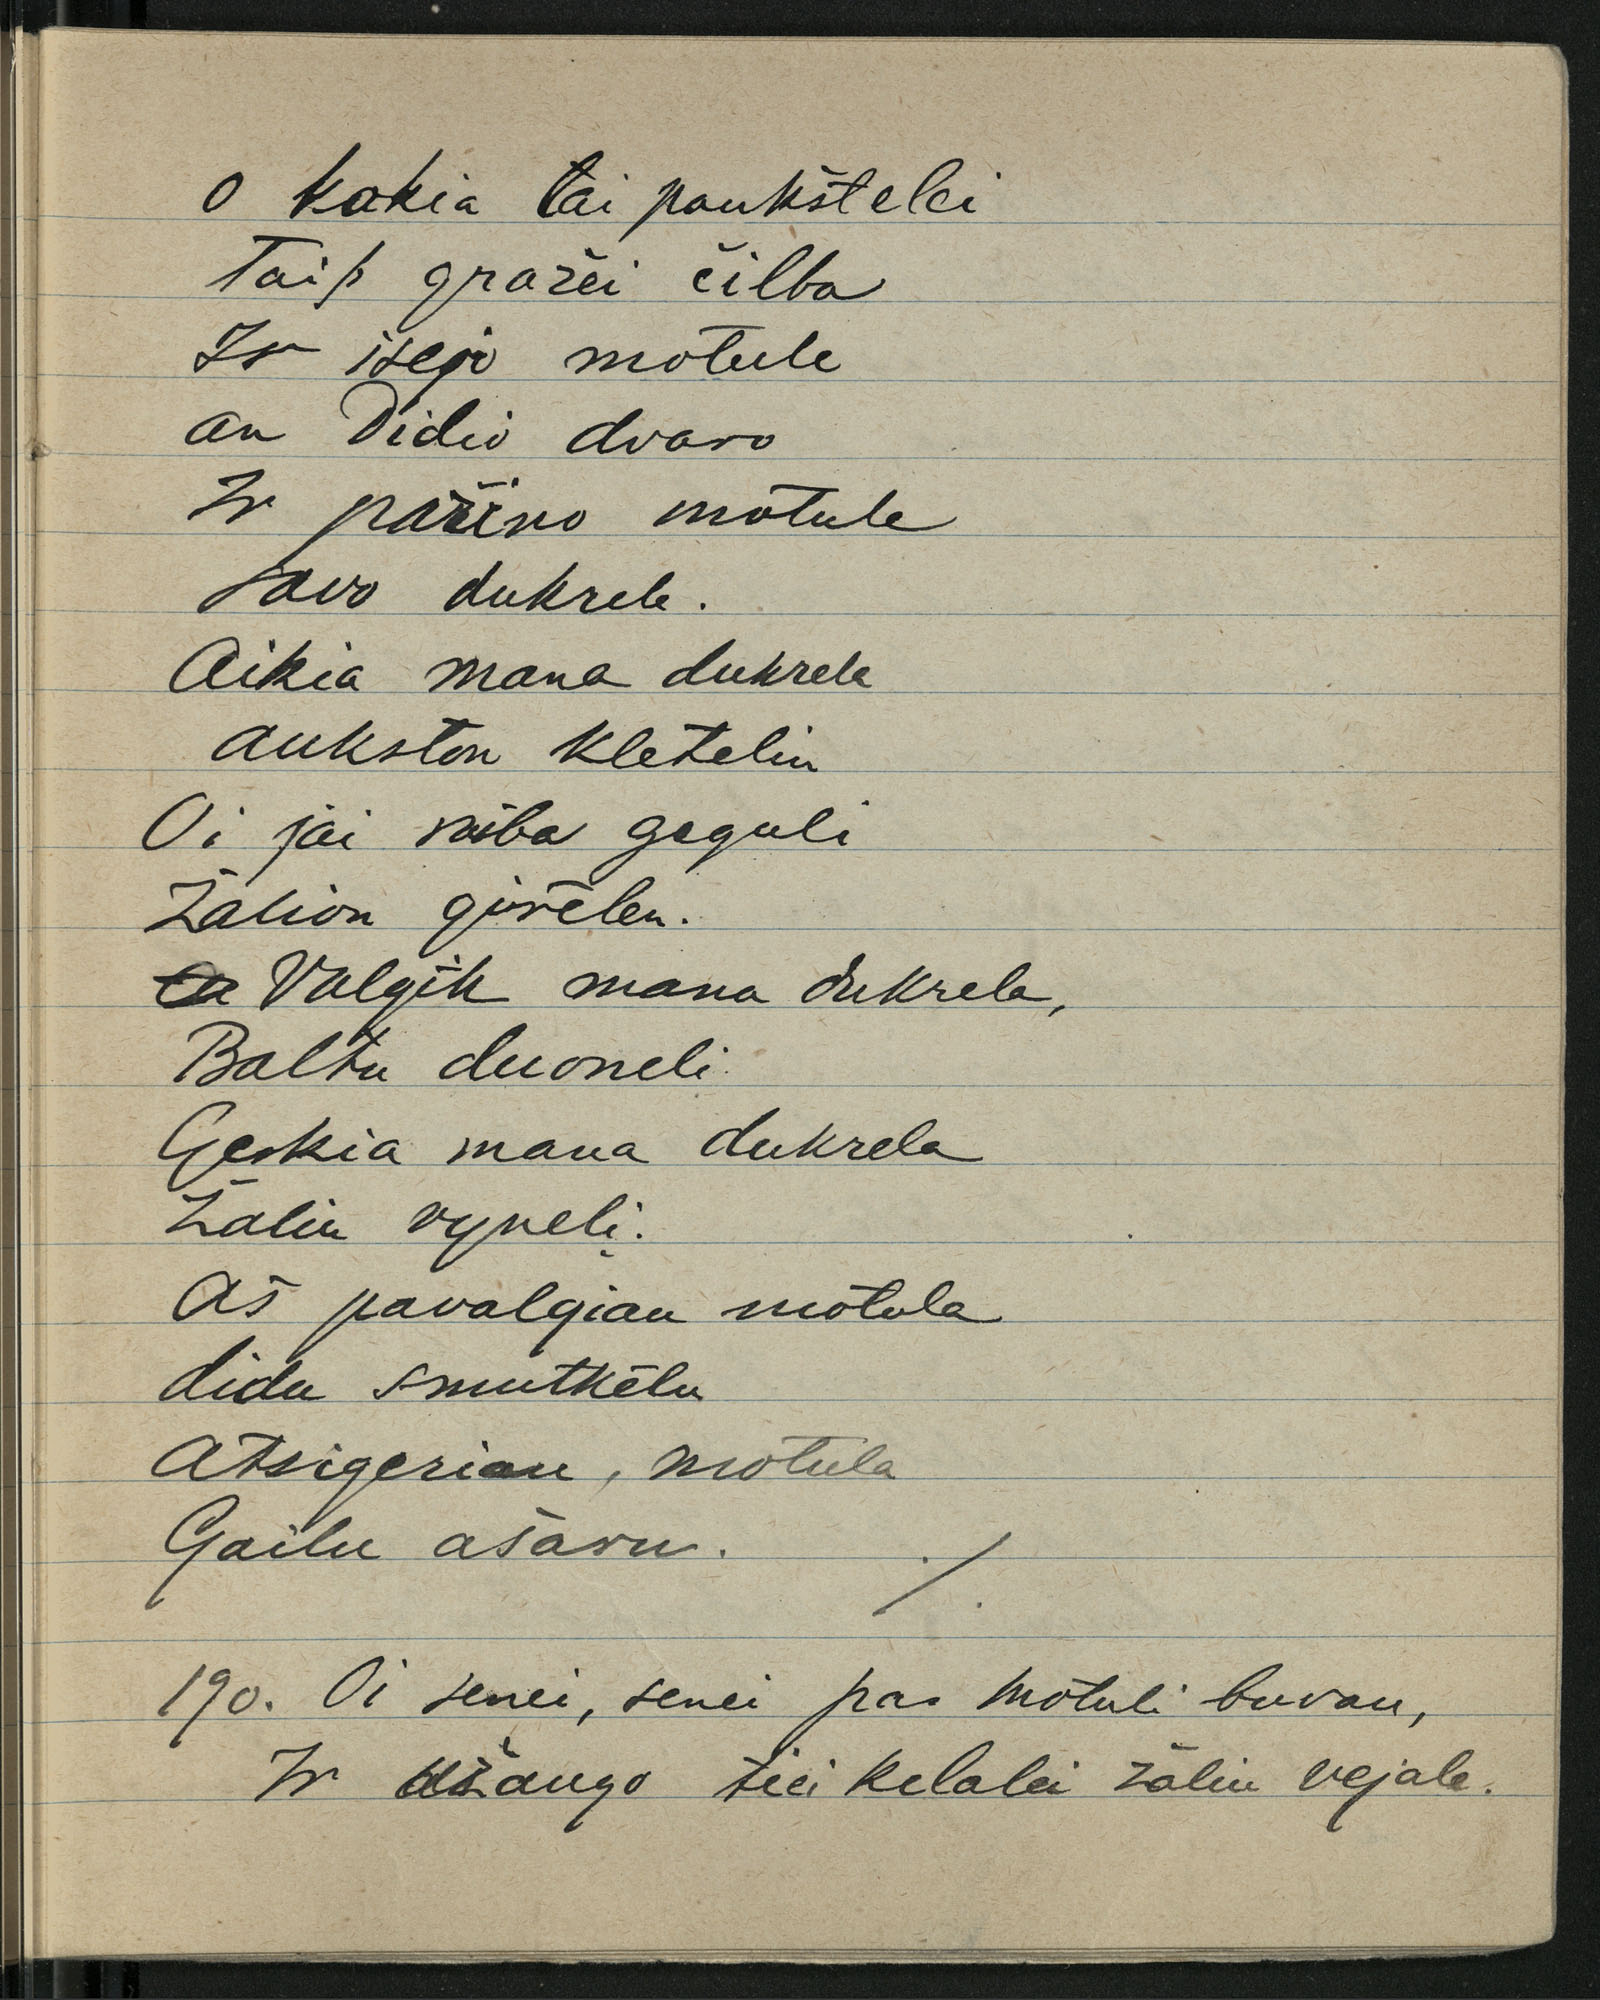 O kokia tai paukštelei
Taip gražei čilba
Ir išejo motule
an Didio dvaro
Ir pažino motule
savo dukrele.
Aikia mana dukrela
aukston kletelin
Oi jai raiba geguli
Žalion girėlen.
Valgik mana dukrela,
Baltu duoneli
Gerkia mana dukrela
Žaliu vyneli.
Aš pavalgiau motula
didu smutkēlu
Atsigeriau, motula
Gailu ašaru. ./.
190. Oi senei, senei pas motuli buvau,
Ir užaugo tiei kelalei žaliu vejale.